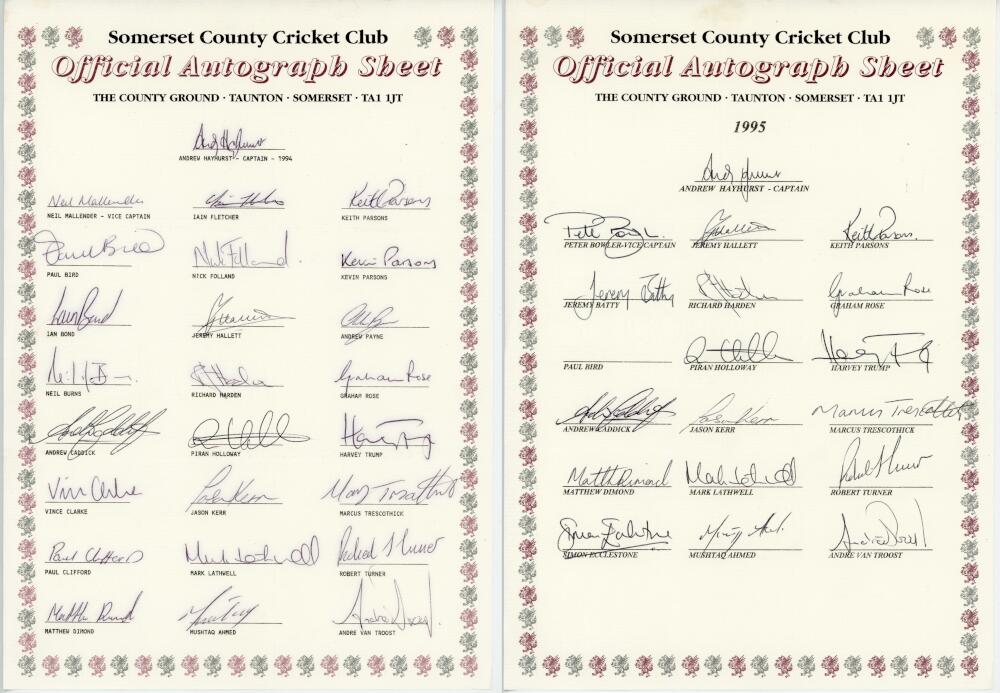 Somerset County Cricket Club
Official Autograph Sheet
THE COUNTY GROUND · TAUNTON · SOMERSET · TA1 1JT
Andy Hayhurst
ANDREW HAYHURST - CAPTAIN - 1994
Neil Mallender Iain Fletcher Keith Parsons
NEIL MALLENDER - VICE CAPTAIN IAIN FLETCHER KEITH PARSONS
Paul Bird Nick Folland Kevin Parsons
PAUL BIRD NICK FOLLAND KEVIN PARSONS
Ian Bond
IAN BOND JEREMY HALLETT ANDREW PAYNE
R Harden Graham Rose
NEIL BURNS RICHARD HARDEN GRAHAM ROSE
ANDREW CADDICK PIRAN HOLLOWAY HARVEY TRUMP
Vince Clarke Jason Kerr Marcus Trescothick
VINCE CLARKE JASON KERR MARCUS TRESCOTHICK
Paul Clifford Mark Lathwell
PAUL CLIFFORD MARK LATHWELL ROBERT TURNER
MATTHEW DIMOND MUSHTAQ AHMED ANDRE VAN TROOST
Somerset County Cricket Club
Official Autograph Sheet
THE COUNTY GROUND · TAUNTON · SOMERSET · TA1 1JT
1995
ANDREW HAYHURST - CAPTAIN
Keith Parsons
PETER BOWLER-VICE CAPTAIN JEREMY HALLETT KEITH PARSONS
Jeremy Batty R Harden Graham Rose
JEREMY BATTY RICHARD HARDEN GRAHAM ROSE
PAUL BIRD PIRAN HOLLOWAY HARVEY TRUMP
Jason Kerr Marcus Trescothick
ANDREW CADDICK JASON KERR MARCUS TRESCOTHICK
Matthew Dimond Mark Lathwell
MATTHEW DIMOND MARK LATHWELL ROBERT TURNER
SIMON ECCLESTONE MUSHTAQ AHMED ANDRE VAN TROOST